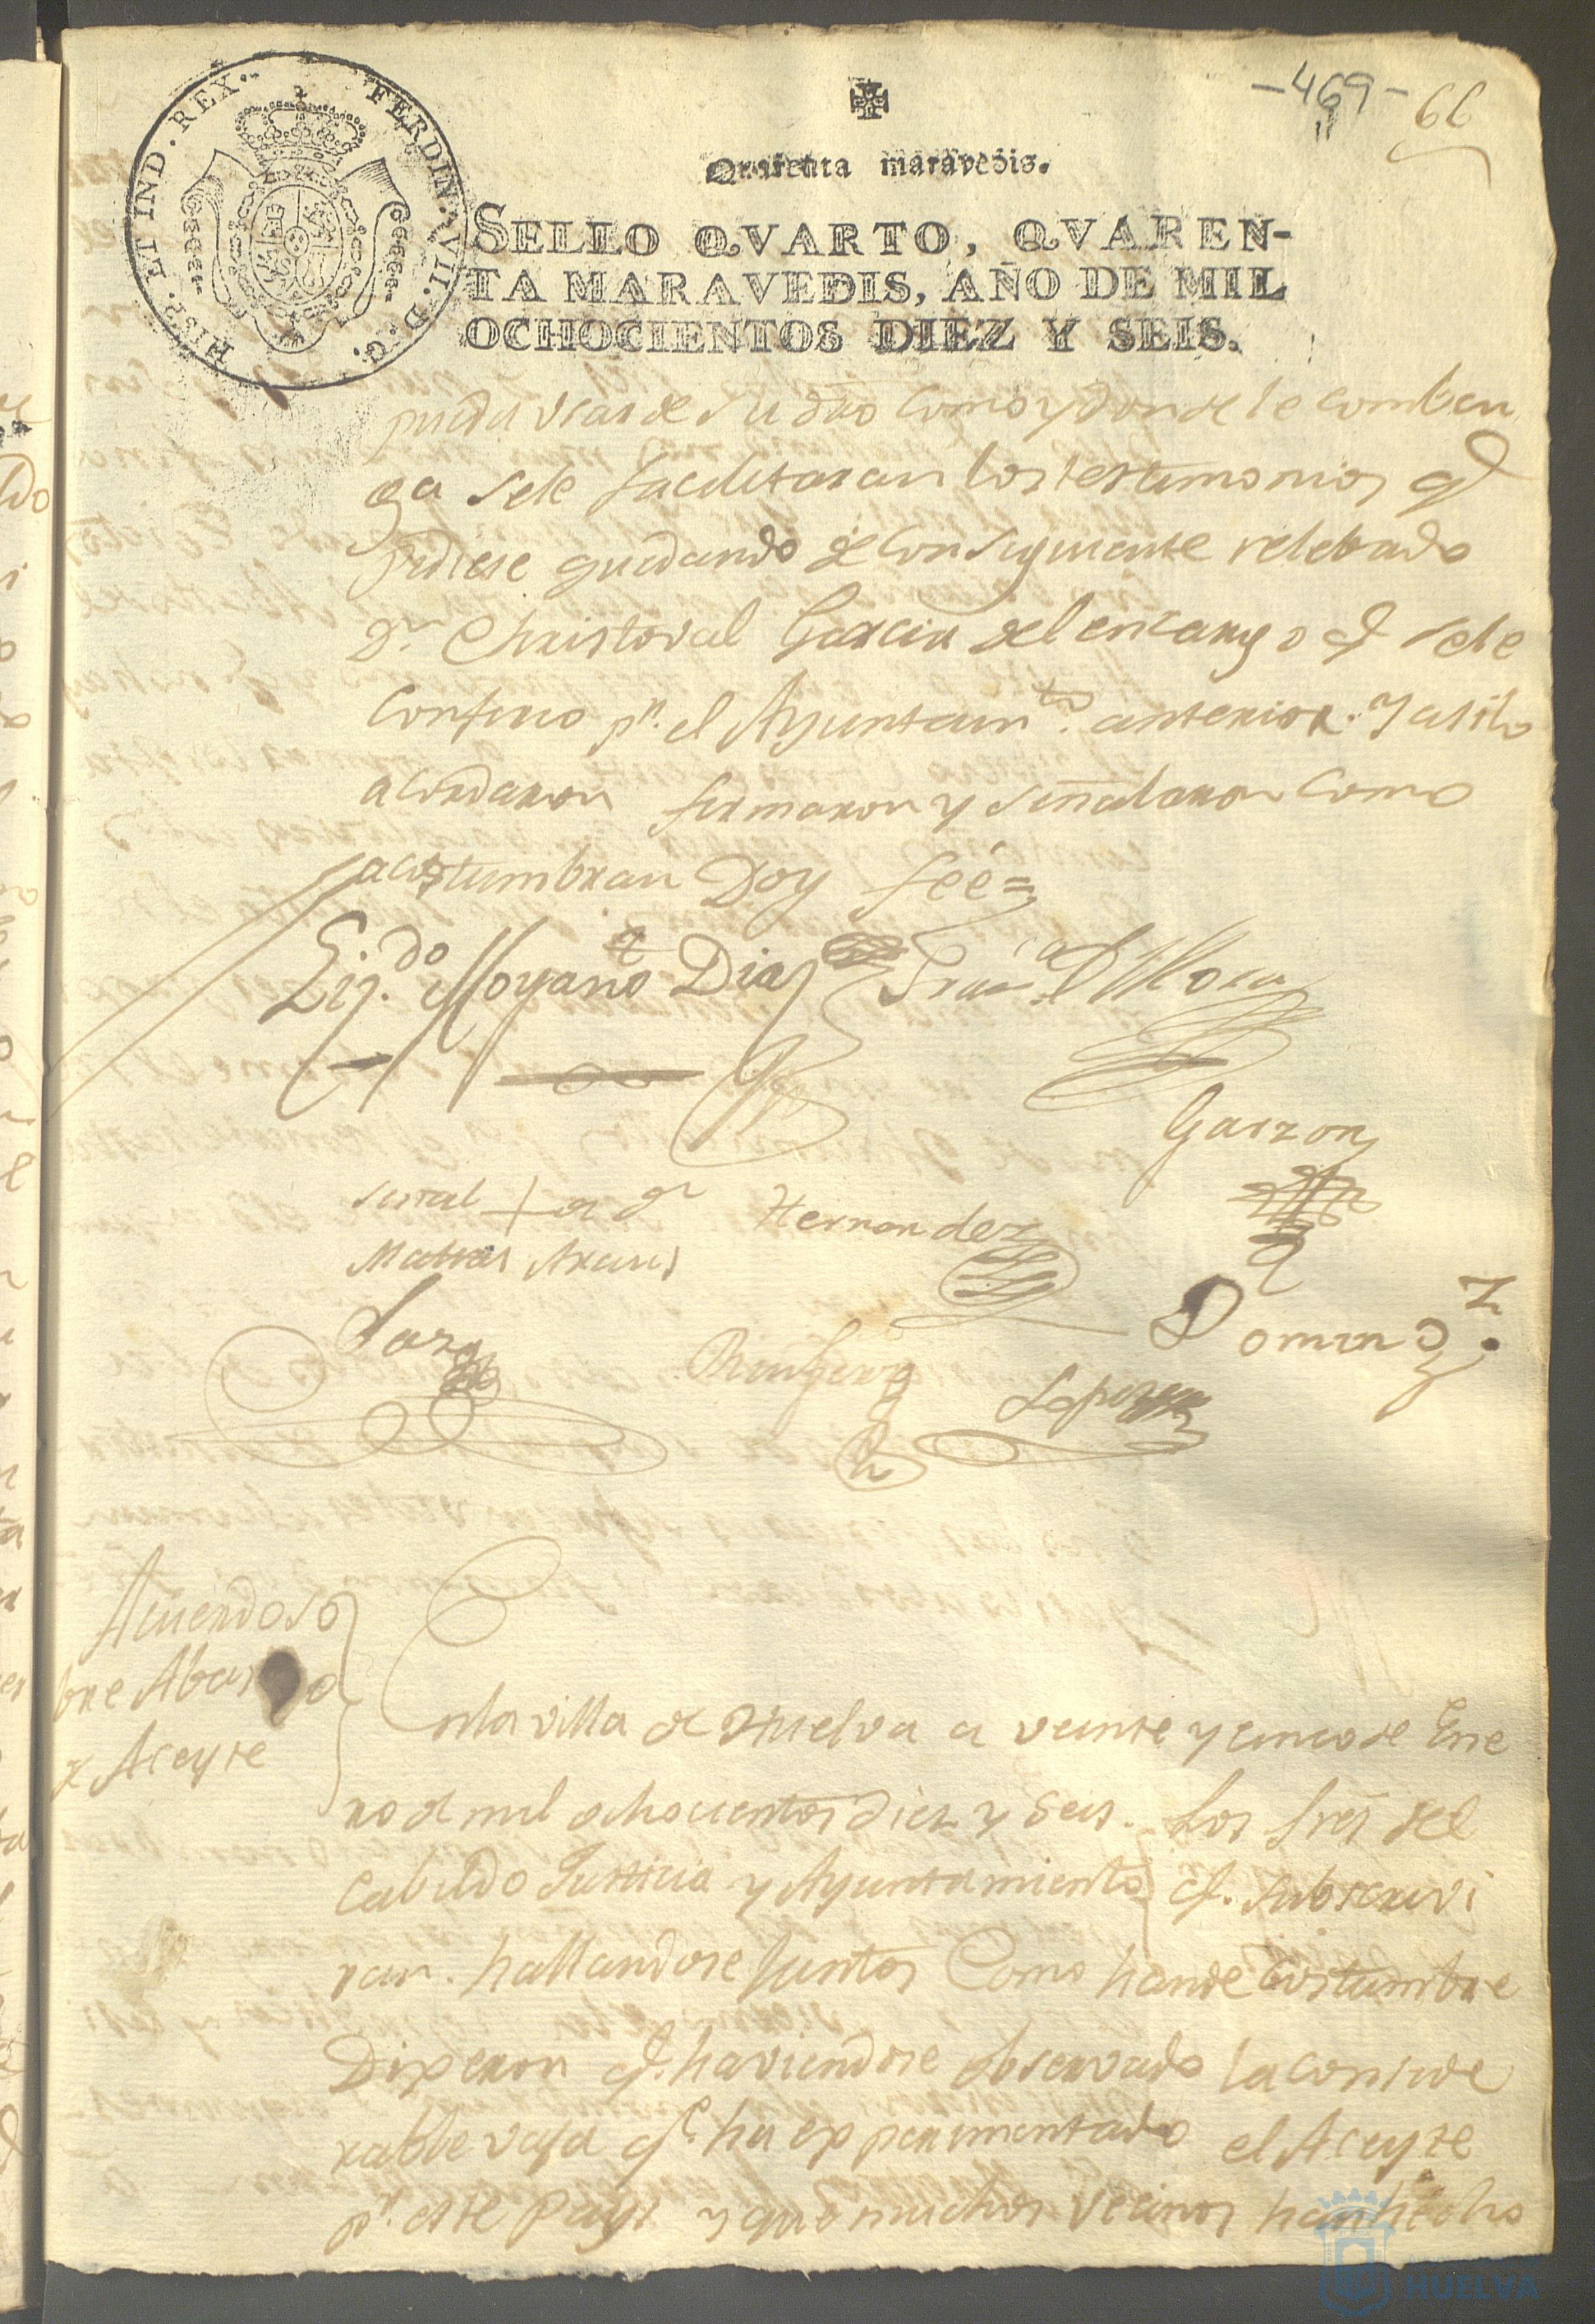 -469- 66
HISP. ET IND. REX. FERDIN. VII. D. G.
Quarenta maravedis.
SELLO QVARTO, QVAREN-
TA MARAVEDIS, AÑO DE MIL
OCHOCIENTOS DIEZ Y SEIS.
pueda usar de su dro como y donde le comben
ga sele facilitaran los testimonios q̃
pidiese quedando de consiguiente relebado
Dn. Christoval Garcia del encargo q̃ sele
confirio pr. el Ayuntamto. anterior. Y asilo
acordaron firmaron y señalaron como
acostumbran Doy feé=
Lizdo. Moyano Diaz Franco. D
Garzon
señal + de Hernandez
Matias
Domingz.
Lopez
Acuerdo so
bre Abasto
de Aceyte
En la villa de Huelva a veinte y cinco de Ene
ro de mil ochocientos diez y seis. Los Sres. del
Cabildo Justicia y Ayuntamiento q. subscrivi
ran. hallandose juntos Como hande Costumbre
Dixeron q. haviendose observado la conside
rable vaja q.e ha experimentado el Aceyte
pr. este Pays y que muchos vecinos han hecho
HUELVA